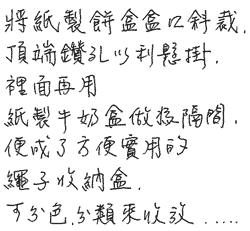 將紙製餅盒盒口斜裁,
頂端鑽孔以利懸掛,
裡面再用
紙製牛奶盒做按隔間,
便成了方便實用的
繩子收納盒,
可分色,分類來收放.....